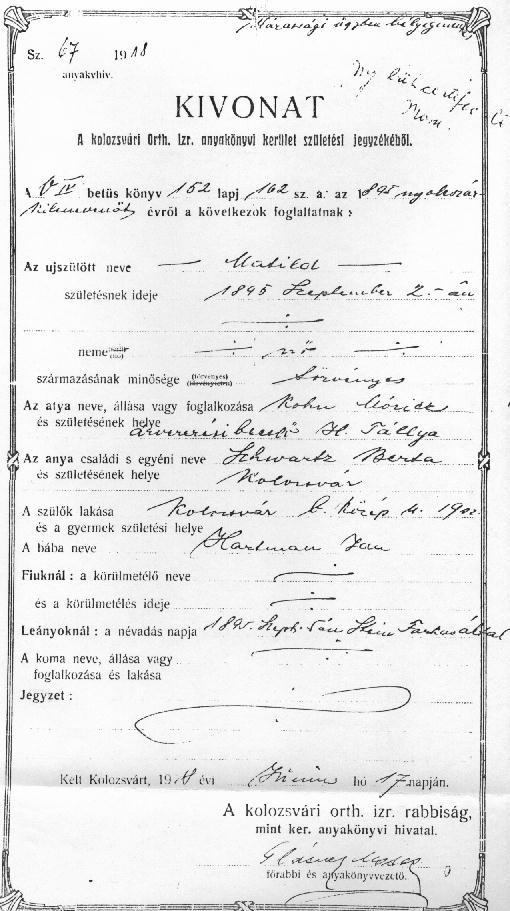 Sz. 67 1918
anyakvhiv.
KIVONAT
A kolozsvári Orth. Izr. anyakönyvi kerület születési jegyzékéből.
A IV betüs könyv 152 lapj 162 sz. a: az 1895 nyolczszáz-
évről a következok foglaltatnak:
Az ujszülött neve — Matild —
születésnek ideje 1895 Szeptember 2.-án
neme (fiú) (nő) nő
származásának minősége (törvényes) (törvénytelen) törvényes
Az atya neve, állása vagy foglalkozása Kohn Móricz
és születésének helye árverési becsüs H. Tállya
Az anya családi s egyéni neve Schwartz Berta
és születésének helye Kolozsvár
A szülők lakása Kolozsvár b. közép u.
és a gyermek születési helye
A bába neve Hartman
Fiuknál: a körülmetélő neve
és a körülmetélés ideje
Leányoknál: a névadás napja 1895. Szept. Stein Farkas által
A koma neve, állása vagy
foglalkozása és lakása
Jegyzet:
Kelt Kolozsvárt, 1918 évi Június hó 17 napján.
A kolozsvári orth. izr. rabbiság,
mint ker. anyakönyvi hivatal.
Glasner
főrabbi és anyakönyvvezető.